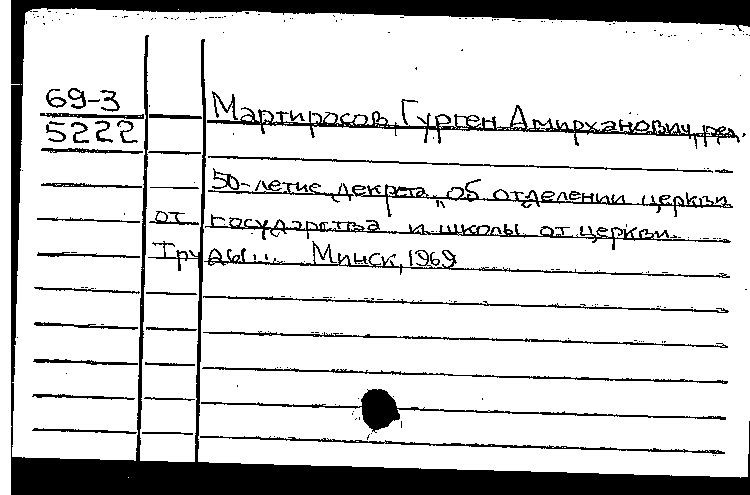 69-3
5222
Мартиросов, Гурген Амирханович, ред.
50-летие декрета „Об отделении церкви
от государства и школы от церкви.
Труды... Минск, 1969